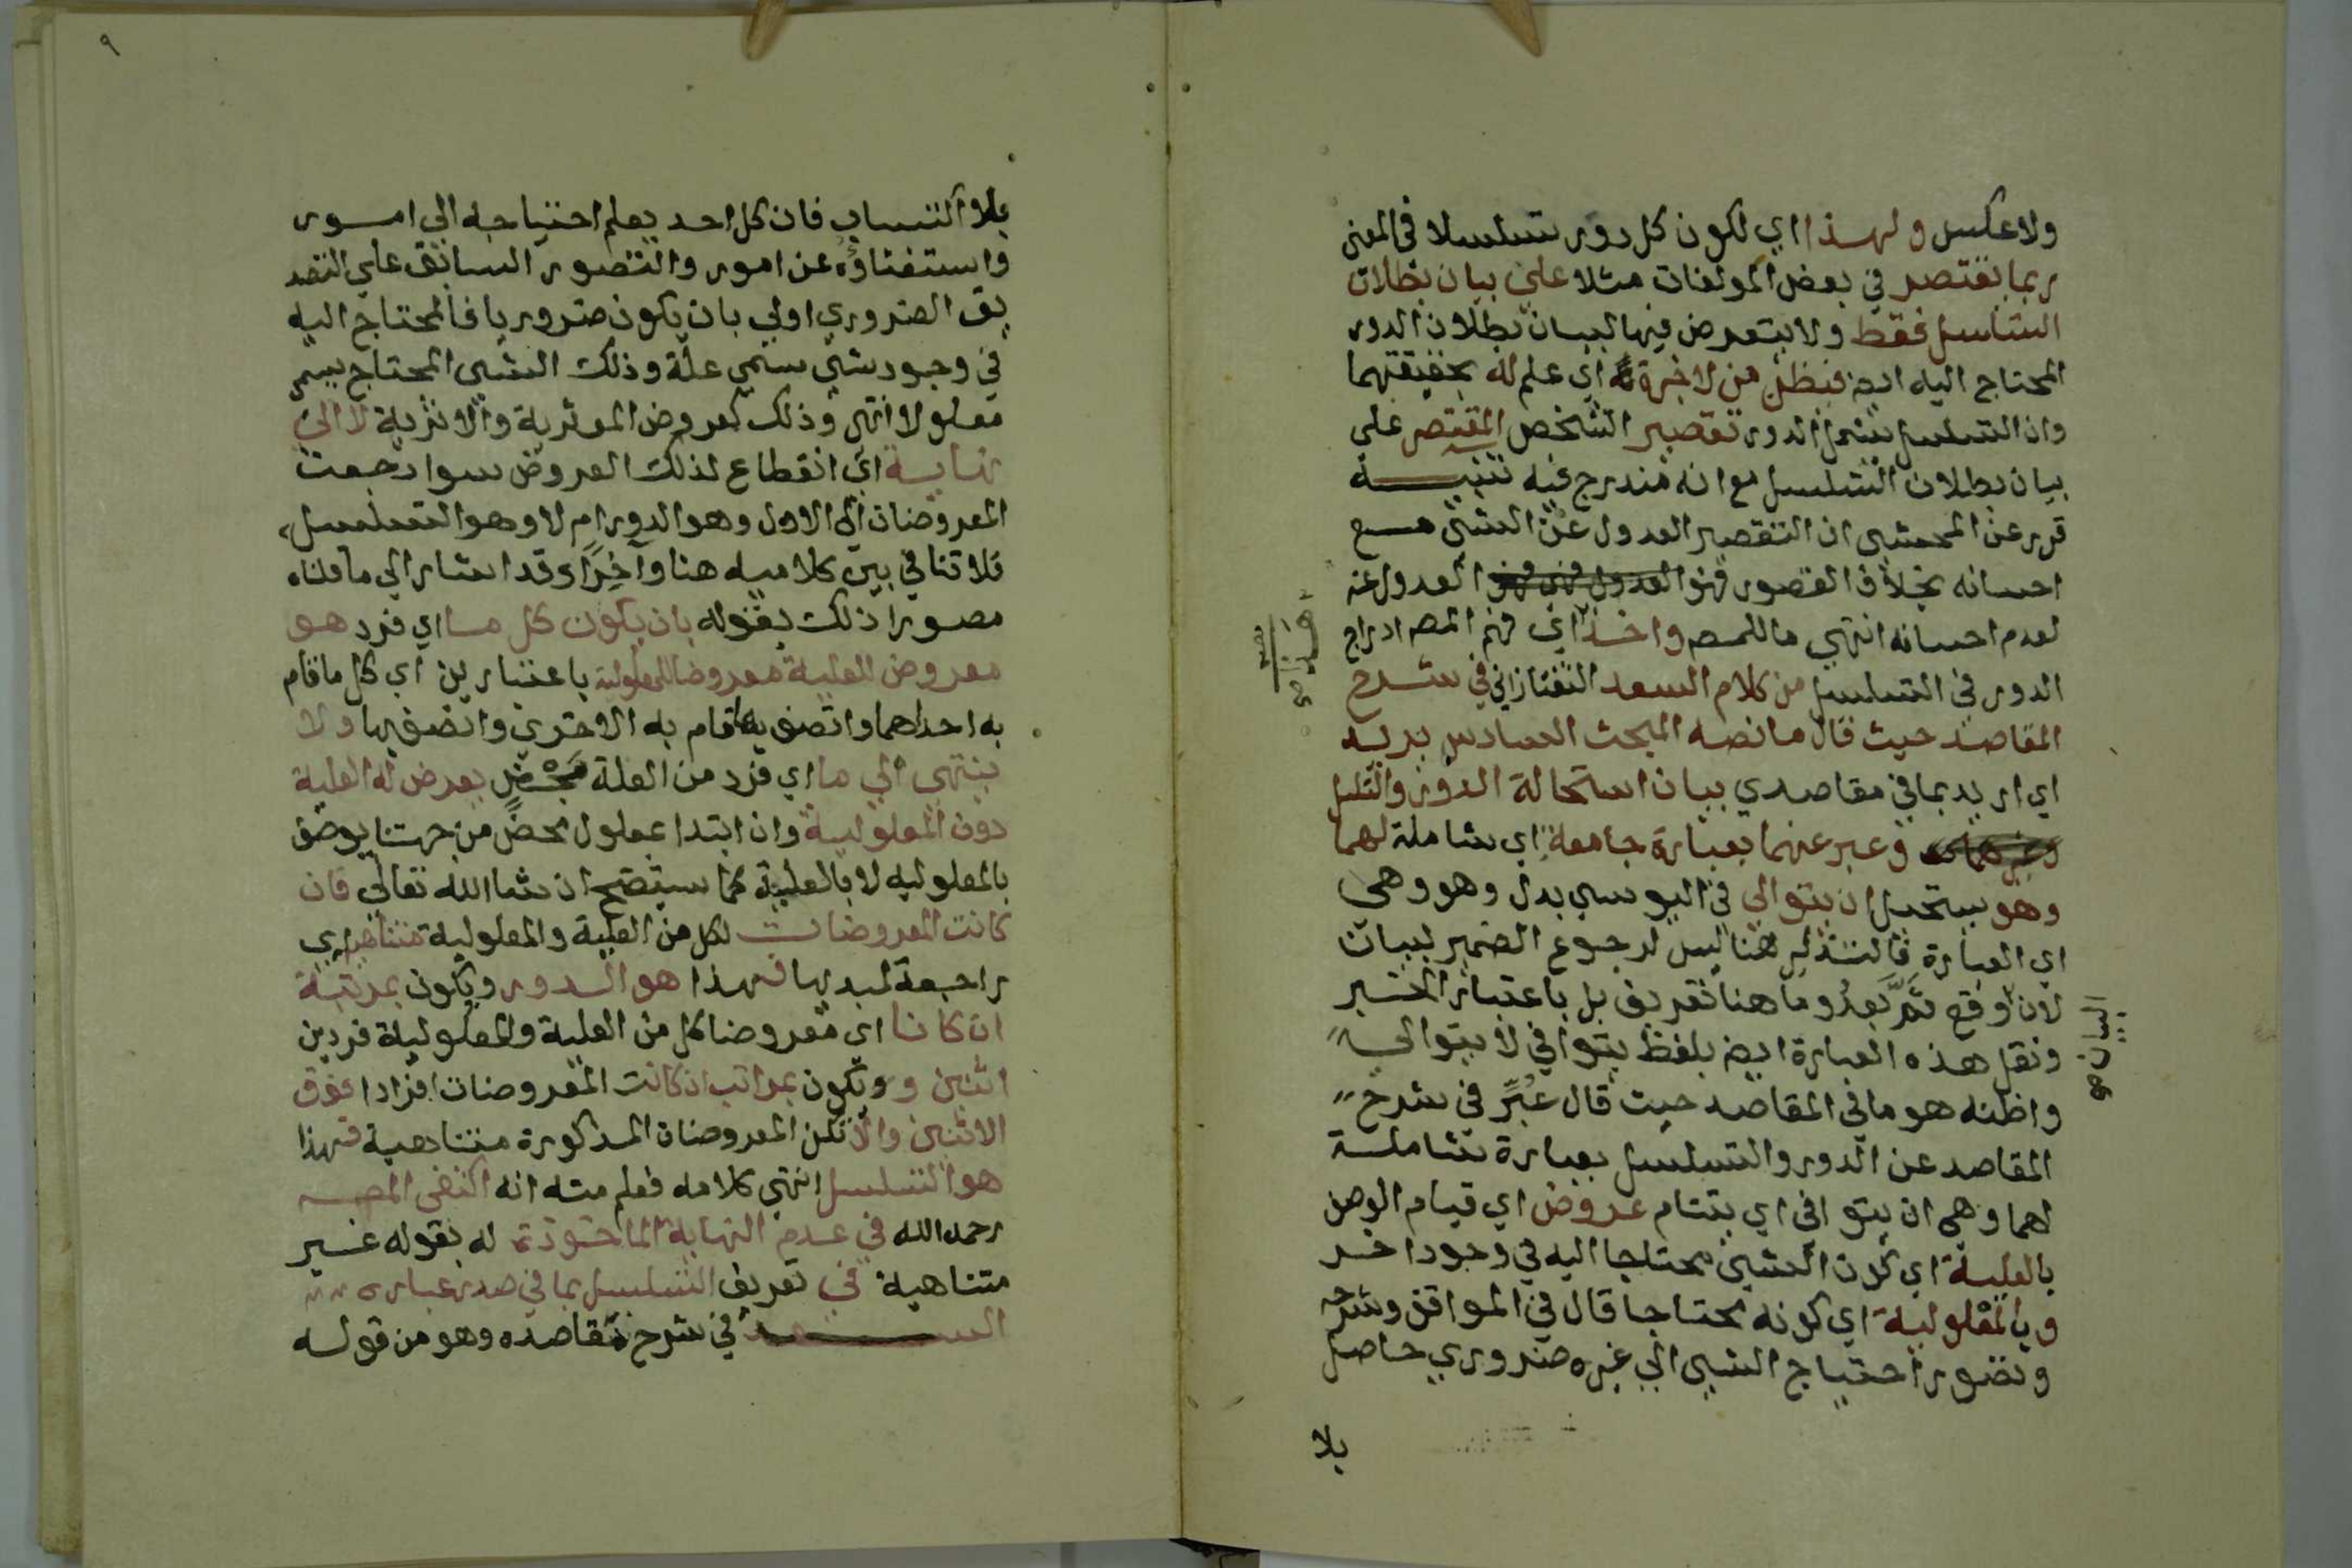 ولا عكس ولهذا اي لكون كل دور تسلسلا في المعنى
ربما يقتصر في بعض المولفات مثلا على بيان بطلان
التسلسل فقط ولا يتعرض فيها لبيان بطلان الدور
المحتاج اليه ايضا فيظن من لا خبرة اي علم له بحقيقتهما
وان التسلسل يشمل الدور تقصير الشخص المقتصر على
بيان بطلان التسلسل مع انه مندرج فيه تنبيه
قرر عن المحشي ان التقصير العدول عن الشي مع
احسانه بخلاف القصور فهو العدول عنه
لعدم احسانه انتهى ما للمص واخذ اي فهم المص ادراج
الدور في التسلسل من كلام السعد التفتازاني في شرح
المقاصد حيث قال ما نصه المبحث السادس يريد
اي اريد بما في مقاصدي بيان استحالة الدور والتسلسل
وعبر عنهما بعبارة جامعة اي شاملة لهما
وهو يستحيل ان يتوالى في اليوسي بدل وهو وهي
اي العبارة فالتذكير هنا ليس لرجوع الضمير لبيان
لان وقع ثم بعد وما هنا تعريف بل باعتبار الخبر
ونقل هذه العبارة ايضا بلفظ يتوافى لا يتوالى
واظنه هو ما في المقاصد حيث قال عبر في شرح
المقاصد عن الدور والتسلسل بعبارة شاملة
لهما وهي ان يتوافى اي يتتام عروض اي قيام الوصف
بالعلية اي كون الشي محتاجا اليه في وجود اخر
وبالمعلولية اي كونه محتاجا قال في المواقف وشرحه
وتصور احتياج الشي الى غيره ضروري حاصل
بلا
البيان صح
٩
بلا اكتساب فان كل احد يعلم احتياجه الى امور
واستغناؤه عن امور والتصور السابق على التصد
يق الضروري اولى بان يكون ضروريا فالمحتاج اليه
في وجود شي يسمي علة وذلك الشي المحتاج يسمي
معلولا انتهى وذلك كعروض الموثرية والاثرية لا الى
نهاية اي انقطاع لذلك العروض سوا رجعت
المعروضات الى الاول وهو الدور ام لا وهو التسلسل
فلا تنافي بين كلاميه هنا وآخرا وقد اشار الى ما قلناه
مصورا ذلك بقوله بان يكون كل ما اي فرد هو
معروض للعلية معروضا للمعلولية باعتبارين اي كل ما قام
به احداهما واتصف بها قام به الاخرى واتصف بها ولا
ينتهى الى ما اي فرد من العلة محض يعرض له العلية
دون المعلولية وان ابتدا بمعلول محض من جهتنا يوصف
بالمعلوليه لا بالعلية كما سيتضح ان شا الله تعالى فان
كانت المعروضات لكل من العلية والمعلولية متناهية اي
راجعة لمبديها فهذا هو الدور ويكون بمرتبة
ان كانا اي معروضا كل من العلية والمعلولية فردين
اثنين ويكون بمراتب ان كانت المعروضات افرادا فوق
الاثنين والا تكن المعروضات المذكورة متناهية فهذا
هو التسلسل انتهى كلامه فعلم منه انه اكتفى المص
رحمه الله في عدم النهاية الماخوذة له بقوله غير
متناهية في تعريف التسلسل بما في صدر عبارة
السعد في شرح مقاصده وهو من قوله